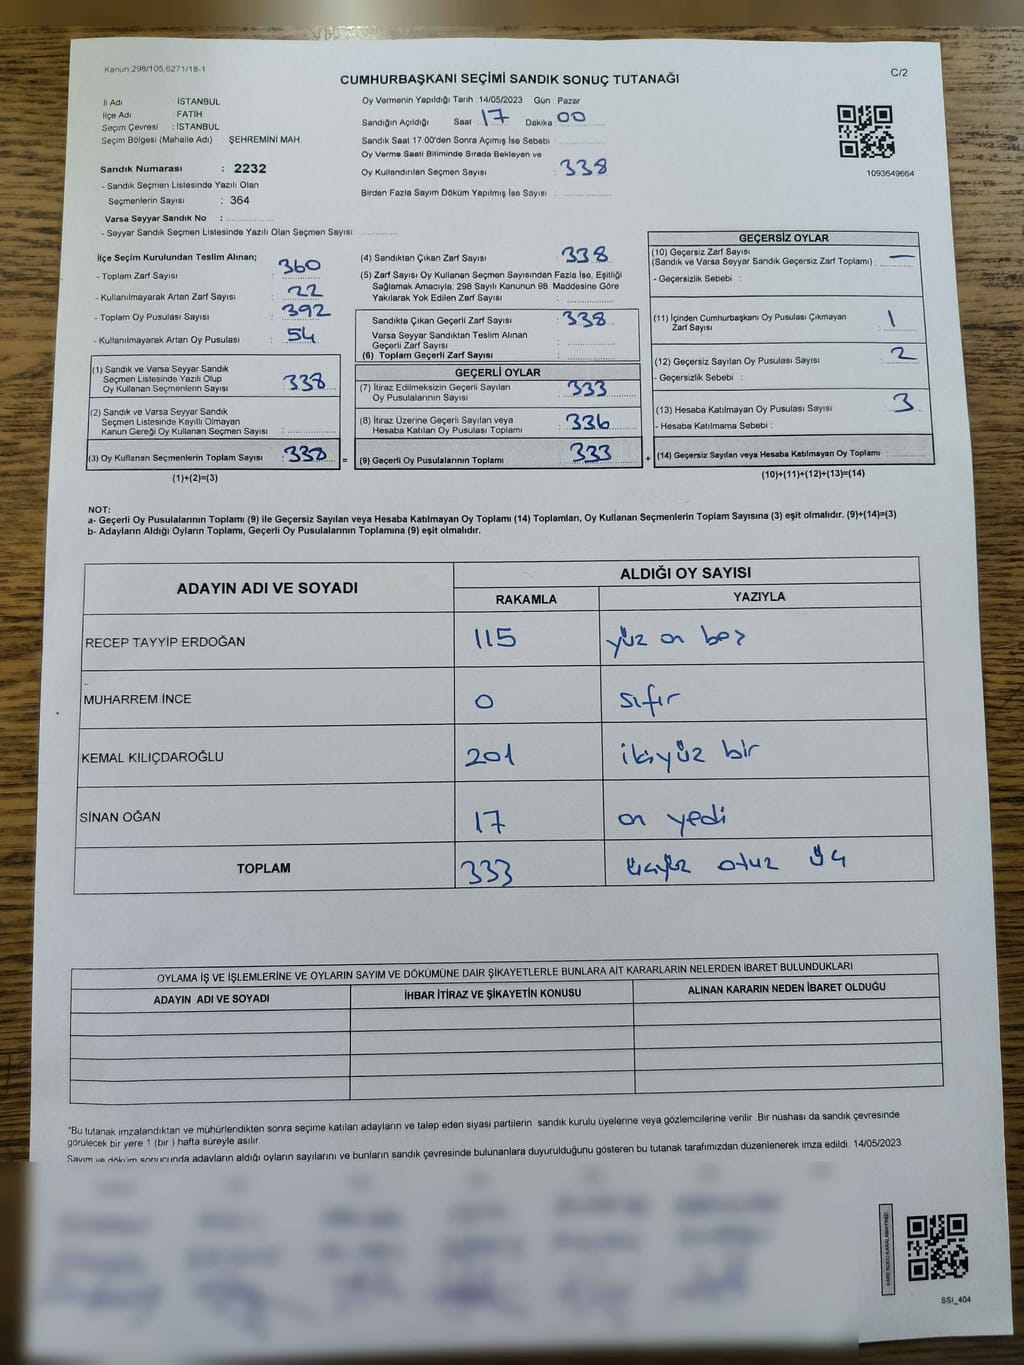 Kanun:298/105,6271/18-1
CUMHURBAŞKANI SEÇİMİ SANDIK SONUÇ TUTANAĞI
C/2
İl Adı : İSTANBUL
İlçe Adı : FATİH
Seçim Çevresi : İSTANBUL
Seçim Bölgesi (Mahalle Adı) : ŞEHREMİNİ MAH
Sandık Numarası : 2232
- Sandık Seçmen Listesinde Yazılı Olan
Seçmenlerin Sayısı : 364
Varsa Seyyar Sandık No :
- Seyyar Sandık Seçmen Listesinde Yazılı Olan Seçmen Sayısı:
Oy Vermenin Yapıldığı Tarih : 14/05/2023 Gün : Pazar
Sandığın Açıldığı Saat : 17 Dakika : 00
Sandık Saat 17:00'den Sonra Açımış İse Sebebi :
Oy Verme Saati Bitiminde Sırada Bekleyen ve
Oy Kullandırılan Seçmen Sayısı : 338
Birden Fazla Sayım Döküm Yapılmış İse Sayısı :
1093649664
İlçe Seçim Kurulundan Teslim Alınan;
- Toplam Zarf Sayısı : 360
- Kullanılmayarak Artan Zarf Sayısı : 22
- Toplam Oy Pusulası Sayısı : 392
- Kullanılmayarak Artan Oy Pusulası : 54
(1) Sandık ve Varsa Seyyar Sandık
Seçmen Listesinde Yazılı Olup
Oy Kullanan Seçmenlerin Sayısı : 338
(2) Sandık ve Varsa Seyyar Sandık
Seçmen Listesinde Kayıtlı Olmayan
Kanun Gereği Oy Kullanan Seçmen Sayısı :
(3) Oy Kullanan Seçmenlerin Toplam Sayısı : 338 =
(1)+(2)=(3)
(4) Sandıktan Çıkan Zarf Sayısı : 338
(5) Zarf Sayısı Oy Kullanan Seçmen Sayısından Fazla İse, Eşitliği
Sağlamak Amacıyla; 298 Sayılı Kanunun 98. Maddesine Göre
Yakılarak Yok Edilen Zarf Sayısı :
Sandıkta Çıkan Geçerli Zarf Sayısı : 338
Varsa Seyyar Sandıktan Teslim Alınan
Geçerli Zarf Sayısı :
(6) Toplam Geçerli Zarf Sayısı :
GEÇERLİ OYLAR
(7) İtiraz Edilmeksizin Geçerli Sayılan
Oy Pusulalarının Sayısı : 333
(8) İtiraz Üzerine Geçerli Sayılan veya
Hesaba Katılan Oy Pusulası Toplamı : 336
(9) Geçerli Oy Pusulalarının Toplamı : 333 +
GEÇERSİZ OYLAR
(10) Geçersiz Zarf Sayısı
(Sandık ve Varsa Seyyar Sandık Geçersiz Zarf Toplamı) : —
- Geçersizlik Sebebi :
(11) İçinden Cumhurbaşkanı Oy Pusulası Çıkmayan
Zarf Sayısı : 1
(12) Geçersiz Sayılan Oy Pusulası Sayısı : 2
- Geçersizlik Sebebi :
(13) Hesaba Katılmayan Oy Pusulası Sayısı : 3
- Hesaba Katılmama Sebebi :
(14) Geçersiz Sayılan veya Hesaba Katılmayan Oy Toplamı :
(10)+(11)+(12)+(13)=(14)
NOT:
a- Geçerli Oy Pusulalarının Toplamı (9) ile Geçersiz Sayılan veya Hesaba Katılmayan Oy Toplamı (14) Toplamları, Oy Kullanan Seçmenlerin Toplam Sayısına (3) eşit olmalıdır. (9)+(14)=(3)
b- Adayların Aldığı Oyların Toplamı, Geçerli Oy Pusulalarının Toplamına (9) eşit olmalıdır.
ADAYIN ADI VE SOYADI ALDIĞI OY SAYISI
RAKAMLA YAZIYLA
RECEP TAYYİP ERDOĞAN 115 yüz on beş
MUHARREM İNCE 0 sıfır
KEMAL KILIÇDAROĞLU 201 ikiyüz bir
SİNAN OĞAN 17 on yedi
TOPLAM 333 üçyüz otuz üç
OYLAMA İŞ VE İŞLEMLERİNE VE OYLARIN SAYIM VE DÖKÜMÜNE DAİR ŞİKAYETLERLE BUNLARA AİT KARARLARIN NELERDEN İBARET BULUNDUKLARI
ADAYIN ADI VE SOYADI İHBAR İTİRAZ VE ŞİKAYETİN KONUSU ALINAN KARARIN NEDEN İBARET OLDUĞU
"Bu tutanak imzalandıktan ve mühürlendikten sonra seçime katılan adayların ve talep eden siyasi partilerin sandık kurulu üyelerine veya gözlemcilerine verilir. Bir nüshası da sandık çevresinde
görülecek bir yere 1 (bir ) hafta süreyle asılır.
Sayım ve döküm sonucunda adayların aldığı oyların sayılarını ve bunların sandık çevresinde bulunanlara duyurulduğunu gösteren bu tutanak tarafımızdan düzenlenerek imza edildi. 14/05/2023
SSI_404